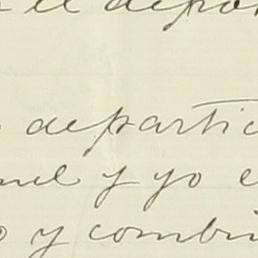 el depor
departic
nel y yo e
o y combi